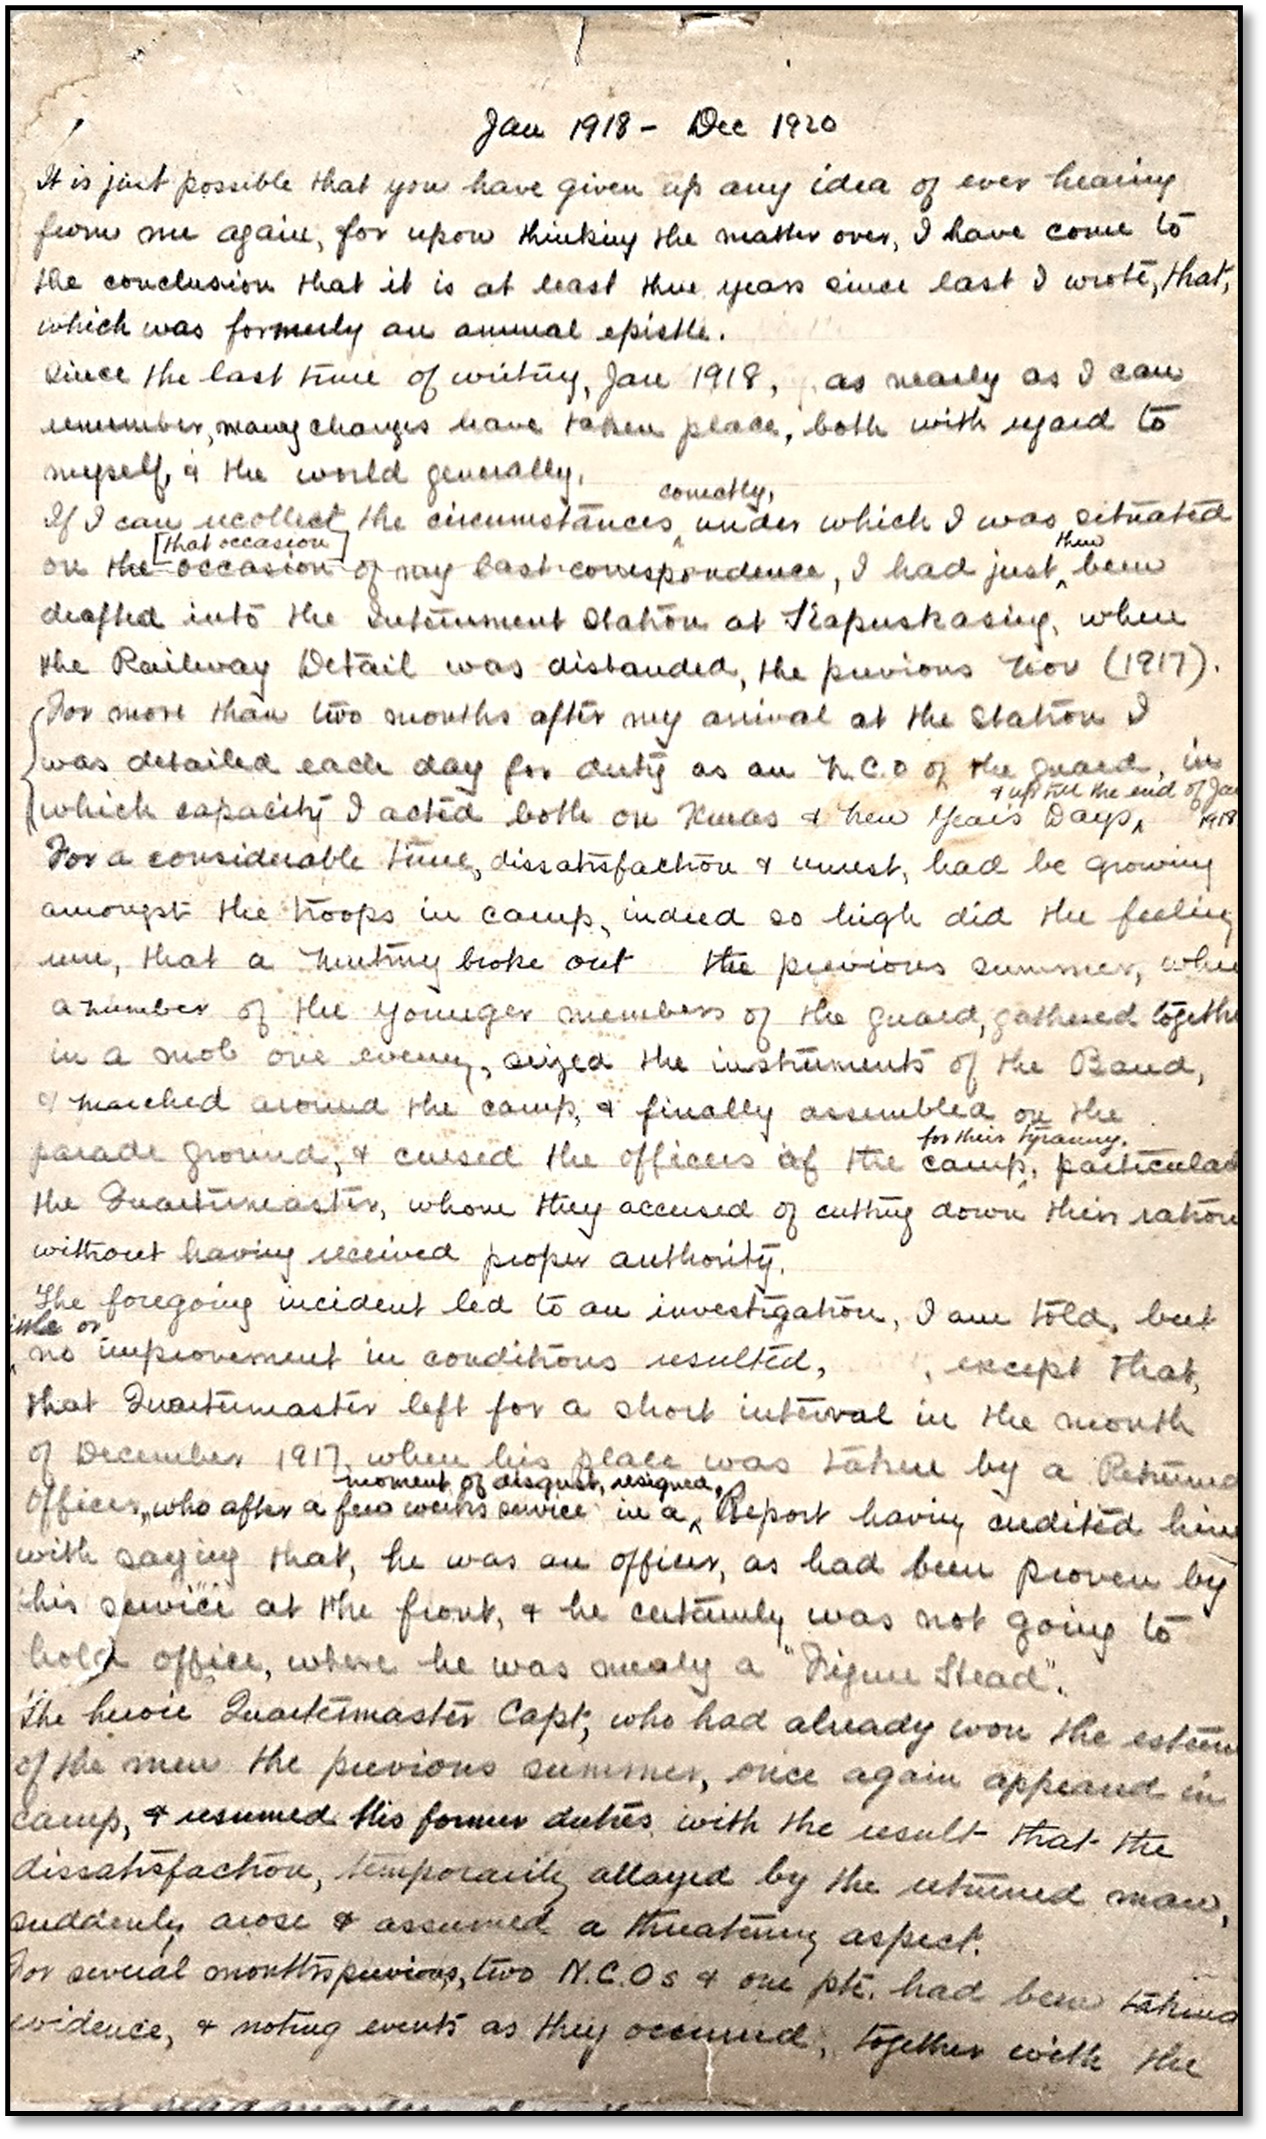 Jan 1918 - Dec 1920
It is just possible that you have given up any idea of ever hearing
from me again, for upon thinking the matter over, I have come to
the conclusion that it is at least three years since last I wrote, that,
which was formerly an annual epistle.
Since the last time of writing, Jan 1918, as nearly as I can
remember, many changes have taken place, both with regard to
myself, & the world generally.
correctly,
If I can recollect the circumstances under which I was situated
[that occasion]
then
on the occasion of my last correspondence, I had just been
drafted into the Internment Station at Kapuskasing, when
the Railway Detail was disbanded, the previous Nov (1917).
For more than two months after my arrival at the Station I
was detailed each day for duty as an N.C.O of the guard, in
& up till the end of Jan
which capacity I acted both on Xmas & New Years Days,
1918
For a considerable time, dissatisfaction & unrest, had be growing
amongst the troops in camp, indeed so high did the feeling
run, that a Mutiny broke out the previous summer, when
a number of the younger members of the guard, gathered together
in a mob one evening, seized the instruments of the Band,
& marched around the camp, & finally assembled on the
for their tyranny.
parade ground, & cursed the officers of the camp, particular
the Quartermaster, whom they accused of cutting down their ration
without having received proper authority.
The foregoing incident led to an investigation, I am told, but
little or
no improvement in conditions resulted, except that,
that Quartermaster left for a short interval in the month
of December 1917, when his place was taken by a Returned
moment of disgust, resigned,
Officer, who after a few weeks service in a Report having credited him
with saying that, he was an officer, as had been proven by
his service at the front, & he certainly was not going to
hold office, where he was merely a "Figure Head".
The heroic Quartermaster Capt, who had already won the esteem
of the men the previous summer, once again appeared in
camp, & resumed his former duties with the result that the
dissatisfaction, temporarily allayed by the returned man,
suddenly arose & assumed a threatening aspect.
For several months previous, two N.C.Os & one pte. had been taking
evidence, & noting events as they occurred, together with the